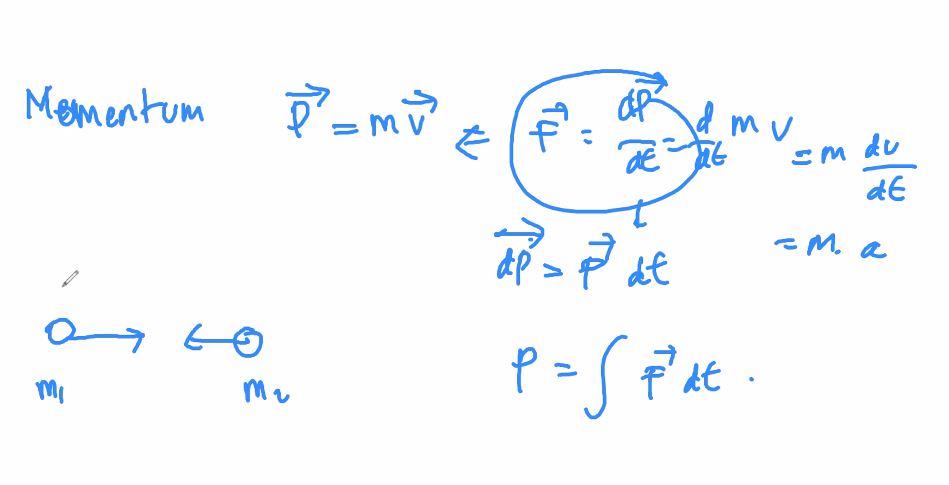 Momentum P⃗ = m v⃗ ⇐ F⃗ = dP⃗/dt = d/dt m v = m dv/dt
= m. a
dP⃗ = F⃗ dt
m₁ m₂
P = ∫ F⃗ dt .